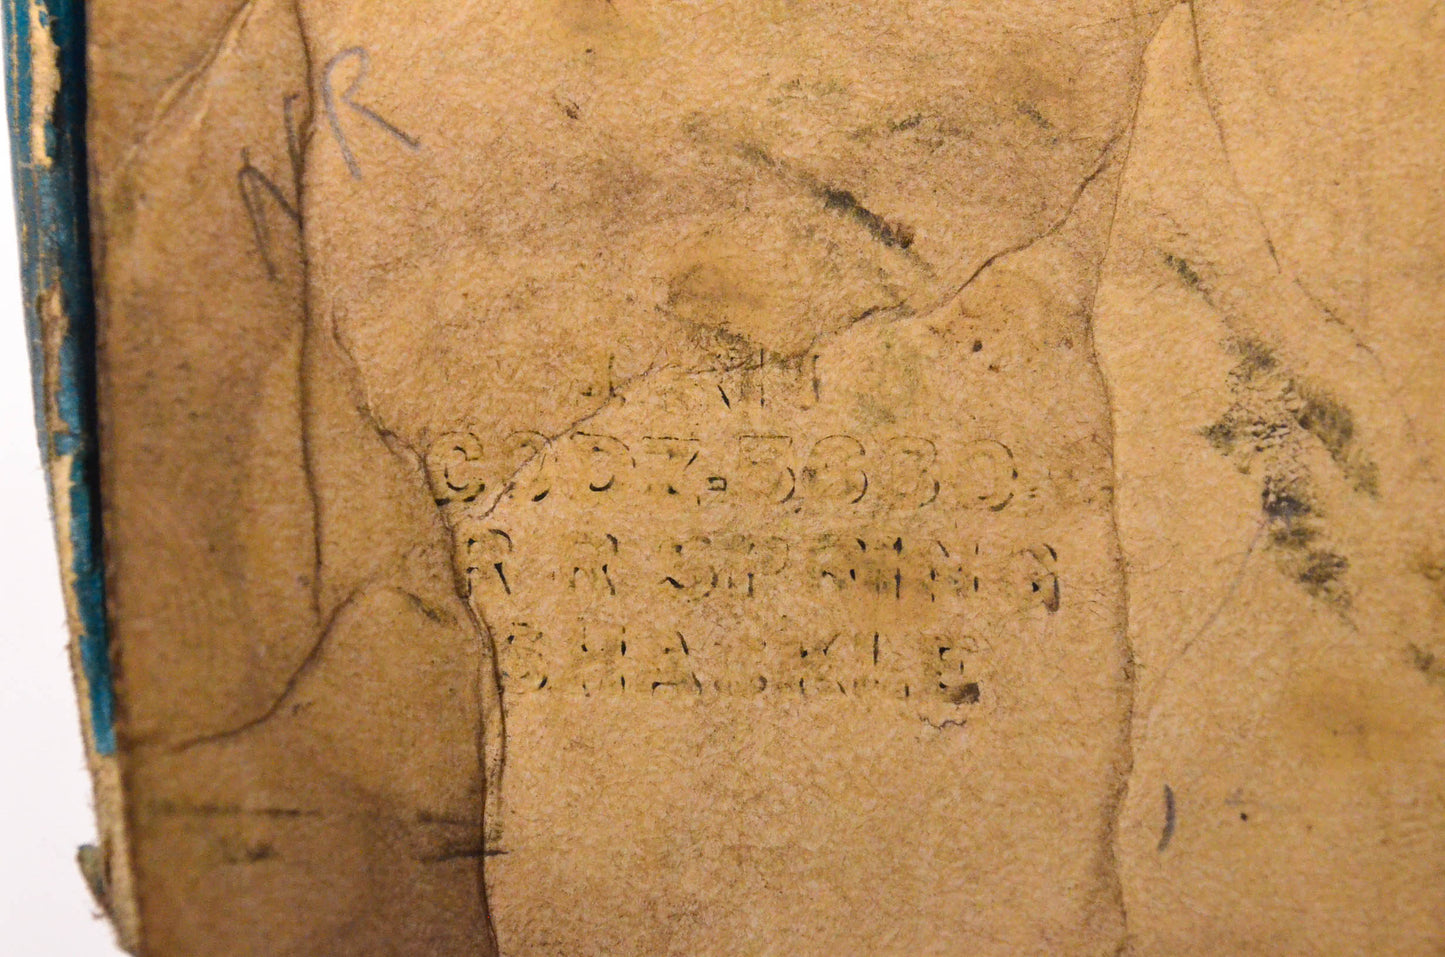 NR
1 KIT
C0DZ-5630-
R R SPRING
SHACKLE